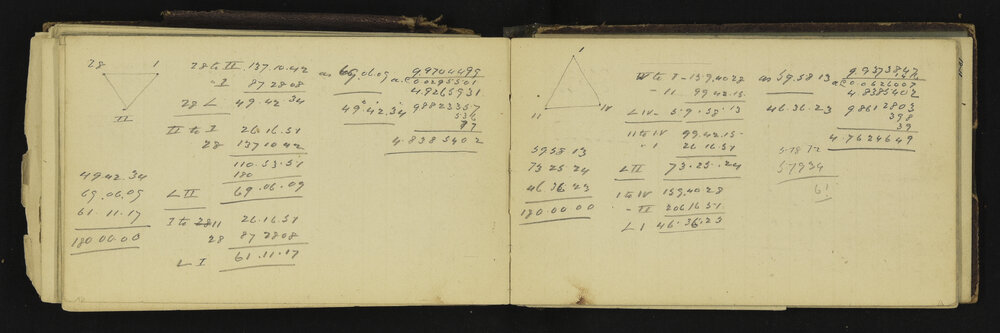 28 1
II
28 to II . 137.10.42
" I 87 28 08
28 L . 49.42.34
II to I 26.16.51
28 137 10 42
110.53.51
180
L II 69.06.09
I to 28 II 26.16.51
28 87 28 08
L I 61.11.17
49 42 34
69.06.09
61.11.17
180 00.00
as 69.06.09 9.9704499
a.c 0.0295501
4.9265931
49.42.34 9.8823357
534
77
4.8385402
I
II IV
59 58 13
73 25 24
46 36 23
180 00 00
IV to I - 159.40 28
- II 99.42.15
L IV - 59.58.13
II to IV 99.42.15
- I 26.16.51
L II 73.25.24
I to IV 159.40 28
- II 206.16.51
L I 46.36.23
as 59.58 13 9.9373847
4.8385402
46.36.23 9.8612803
398
39
4.7624649
57934
61